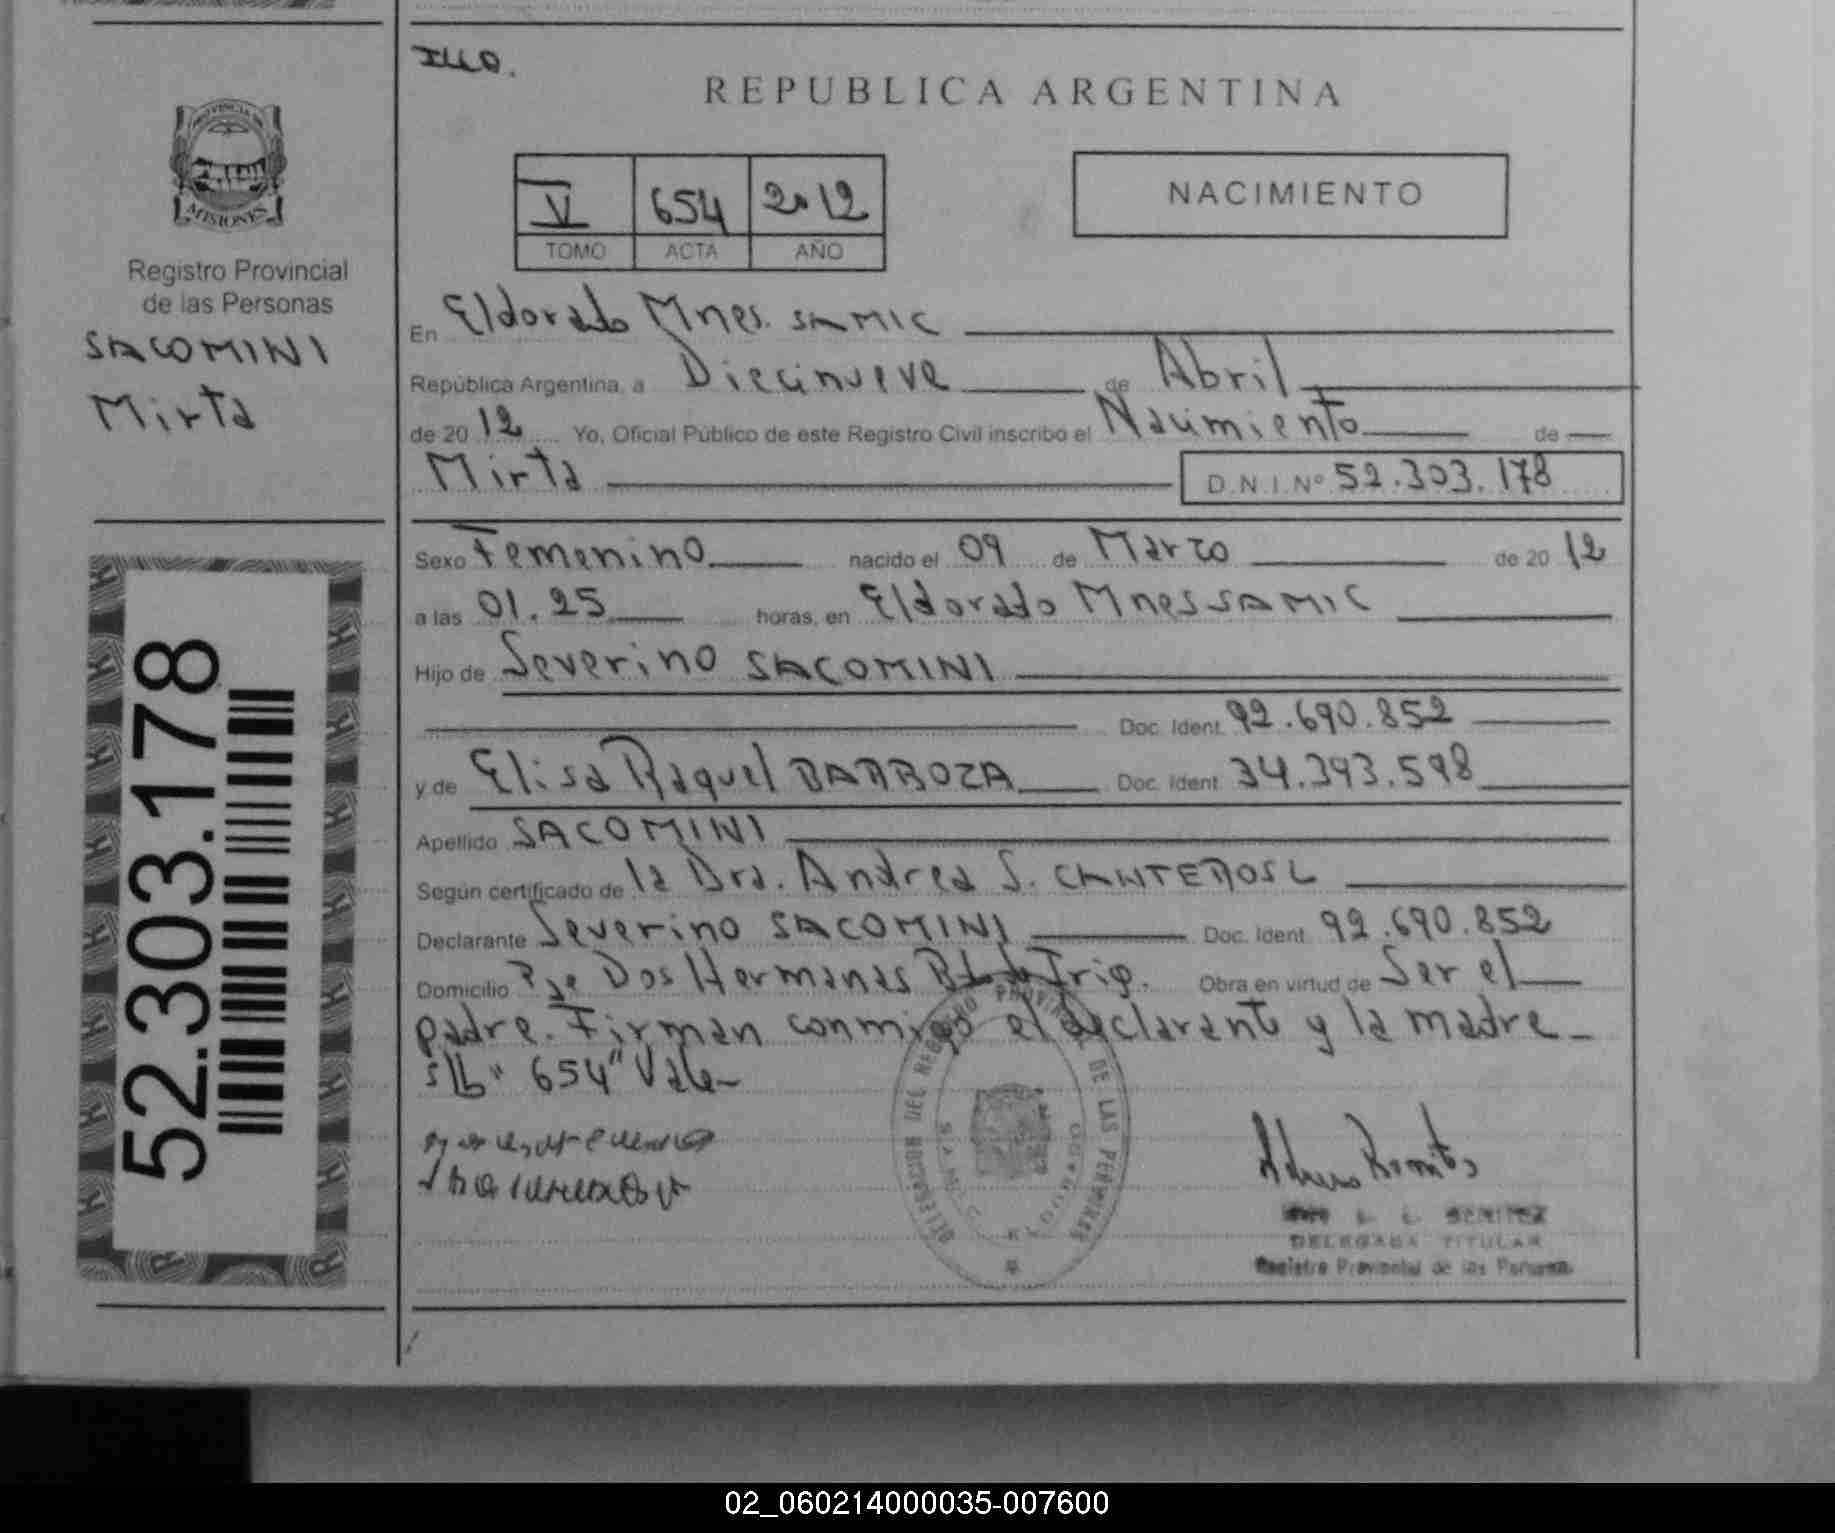 REPUBLICA ARGENTINA
PROVINCIA DE
MISIONES
Registro Provincial
de las Personas
SACOMINI
Mirta
V 654 2012
TOMO ACTA AÑO
NACIMIENTO
En Eldorado Mnes. SAMIC
República Argentina, a Diecinueve de Abril
de 2012 Yo, Oficial Público de este Registro Civil inscribo el Nacimiento de
Mirta D.N.I. Nº 52.303.178
Sexo Femenino nacido el 09 de Marzo de 2012
a las 01.25 horas, en Eldorado Mnes SAMIC
Hijo de Severino SACOMINI
Doc. Ident. 92.690.852
y de Elisa Raquel BARBOZA Doc. Ident. 34.393.598
Apellido SACOMINI
Según certificado de la Dra. Andrea S. CANTEROS
Declarante Severino SACOMINI Doc. Ident. 92.690.852
Domicilio Pje Dos Hermanas Obra en virtud de Ser el
padre. Firman conmigo el declarante y la madre
s/b "654" Vale
52.303.178
DELEGACION DEL REGISTRO PROVINCIAL DE LAS PERSONAS
ELDORADO
BENITEZ
DELEGADA TITULAR
Registro Provincial de las Personas
02_060214000035-007600